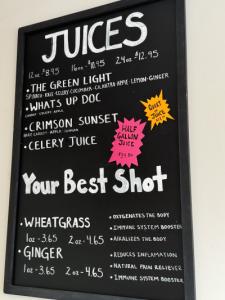 JUICES
12oz $8.95 16oz - 10.95 24oz $12.95
• THE GREEN LIGHT
SPINACH · KALE · CELERY · CUCUMBER · CILANTRO · APPLE · LEMON · GINGER
• WHATS UP DOC
CARROT · CELERY · APPLE
• CRIMSON SUNSET
CARROT · APPLE · GINGER
• CELERY JUICE
JUICE
HALF
GALLON
JUICE
Your Best Shot
• WHEATGRASS
1oz - 3.65 2oz - 4.65
• GINGER
1oz - 3.65 2oz - 4.65
• OXYGENATES THE BODY
• IMMUNE SYSTEM BOOSTER
• ALKALIZES THE BODY
• REDUCES INFLAMATION
• NATURAL PAIN RELIEVER
• IMMUNE SYSTEM BOOSTER